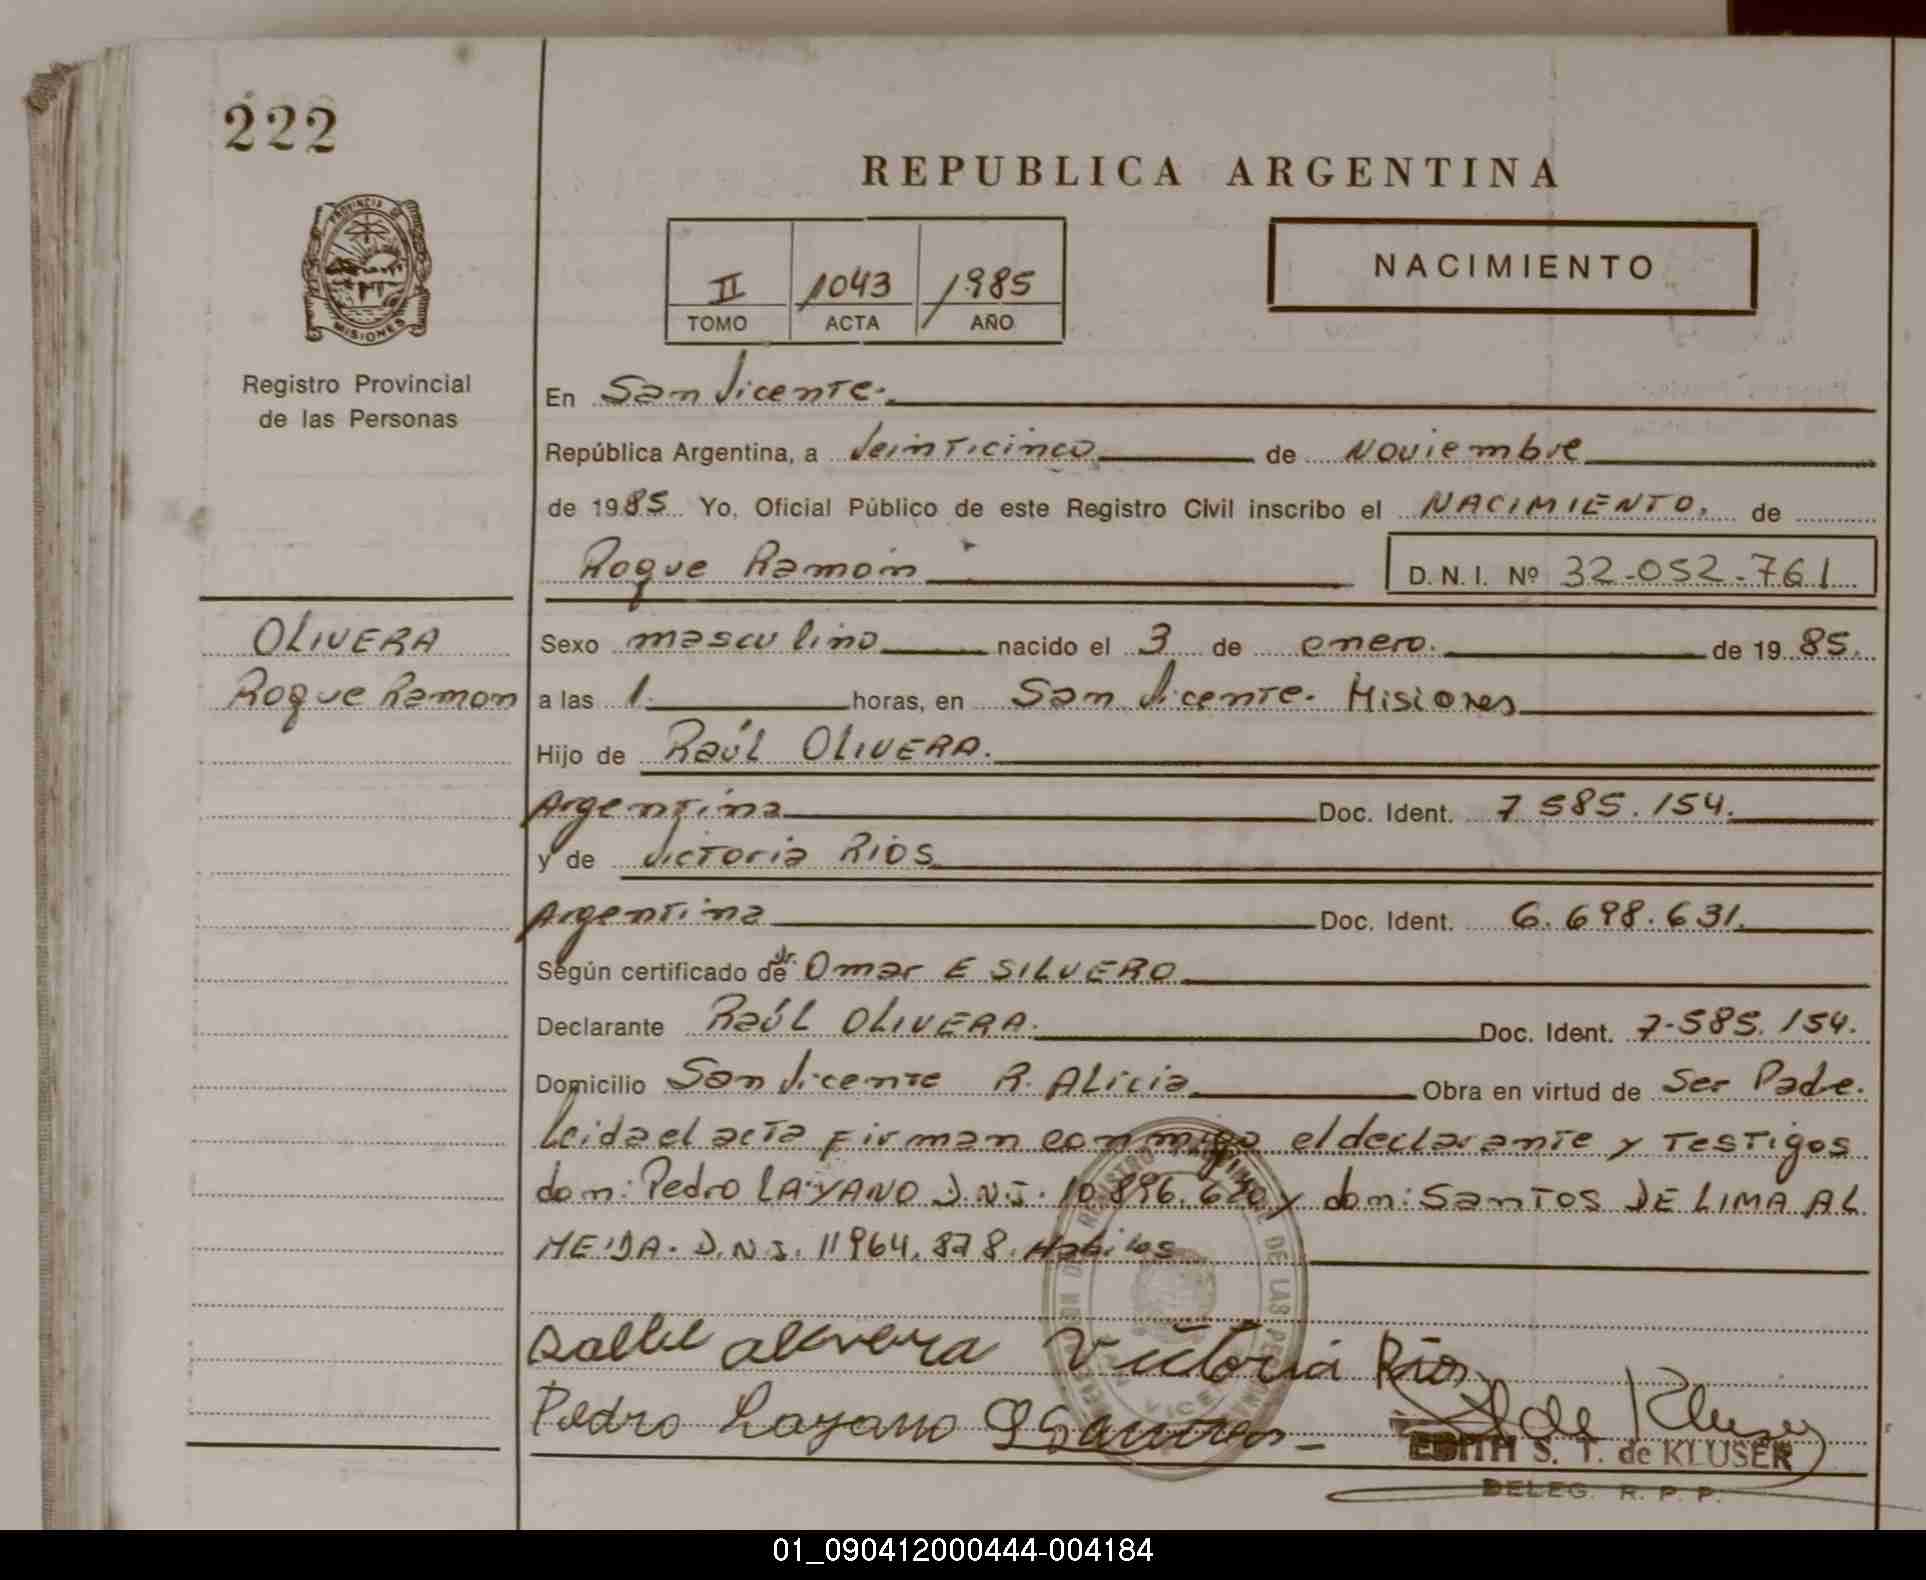 222
REPUBLICA ARGENTINA
PROVINCIA DE
MISIONES
Registro Provincial
de las Personas
II 1043 1985
TOMO ACTA AÑO
NACIMIENTO
En San Vicente.
República Argentina, a Veinticinco de Noviembre
de 1985 Yo, Oficial Público de este Registro Civil inscribo el NACIMIENTO. de
Roque Ramón D. N. I. Nº 32-052-761
OLIVERA
Roque Ramon
Sexo masculino nacido el 3 de enero. de 1985.
a las 1. horas, en San Vicente. Misiones
Hijo de Raúl OLIVERA.
Argentina Doc. Ident. 7 585.154.
y de Victoria RIOS
Argentina Doc. Ident. 6.698.631.
Según certificado de dr. Omar E SILVERO
Declarante Raúl OLIVERA. Doc. Ident. 7-585.154.
Domicilio San Vicente R. ALicia Obra en virtud de Ser Padre.
Leida el acta Firman conmigo el declarante y Testigos
don: Pedro LAYANO D.N.I. 10.896.620 y don: SanTOS DE LIMA AL
MEIDA. D.N.I. 11964.878. Habiles
Victoria Rios
Pedro Layano
de Kluser
EDITH S. T. de KLUSER
DELEG. R. P. P.
01_090412000444-004184